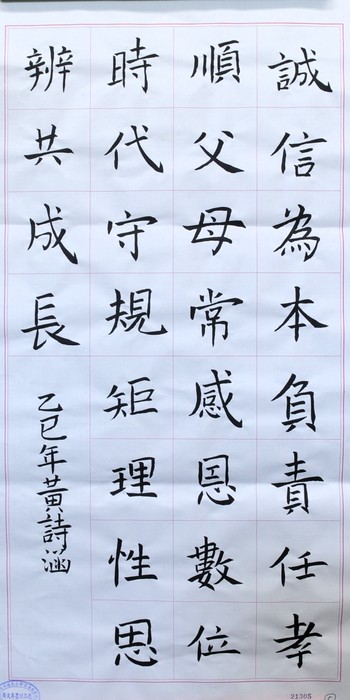 誠信為本負責任孝
順父母常感恩數位
時代守規矩理性思
辨共成長
乙巳年黃詩涵
21305